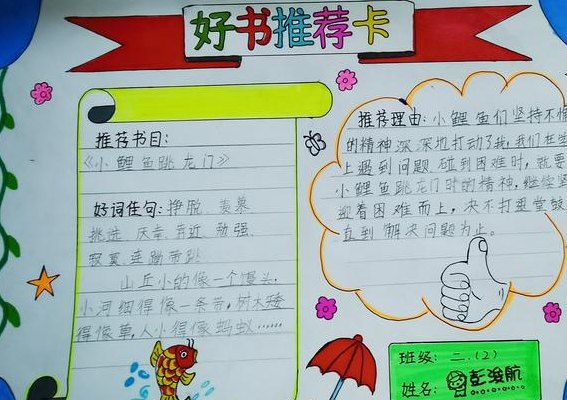 好书推荐卡
推荐书目:
《小鲤鱼跳龙门》
好词佳句: 挣脱 羡慕
挑选 庆幸 靠近 劲强
寂寞 连蹦带跳
山丘小的像一个馒头.
小河细得像一条带,树木矮
得像草,人小得像蚂蚁……
推荐理由: 小鲤鱼们坚持不懈
的精神深深地打动了我,我们在生
上遇到问题 碰到困难时,就要
小鲤鱼跳龙门时的精神,继续坚
迎着困难而上,决不打退堂鼓
直到解决问题为止。
班级: 二.(2)
姓名: 彭浚航